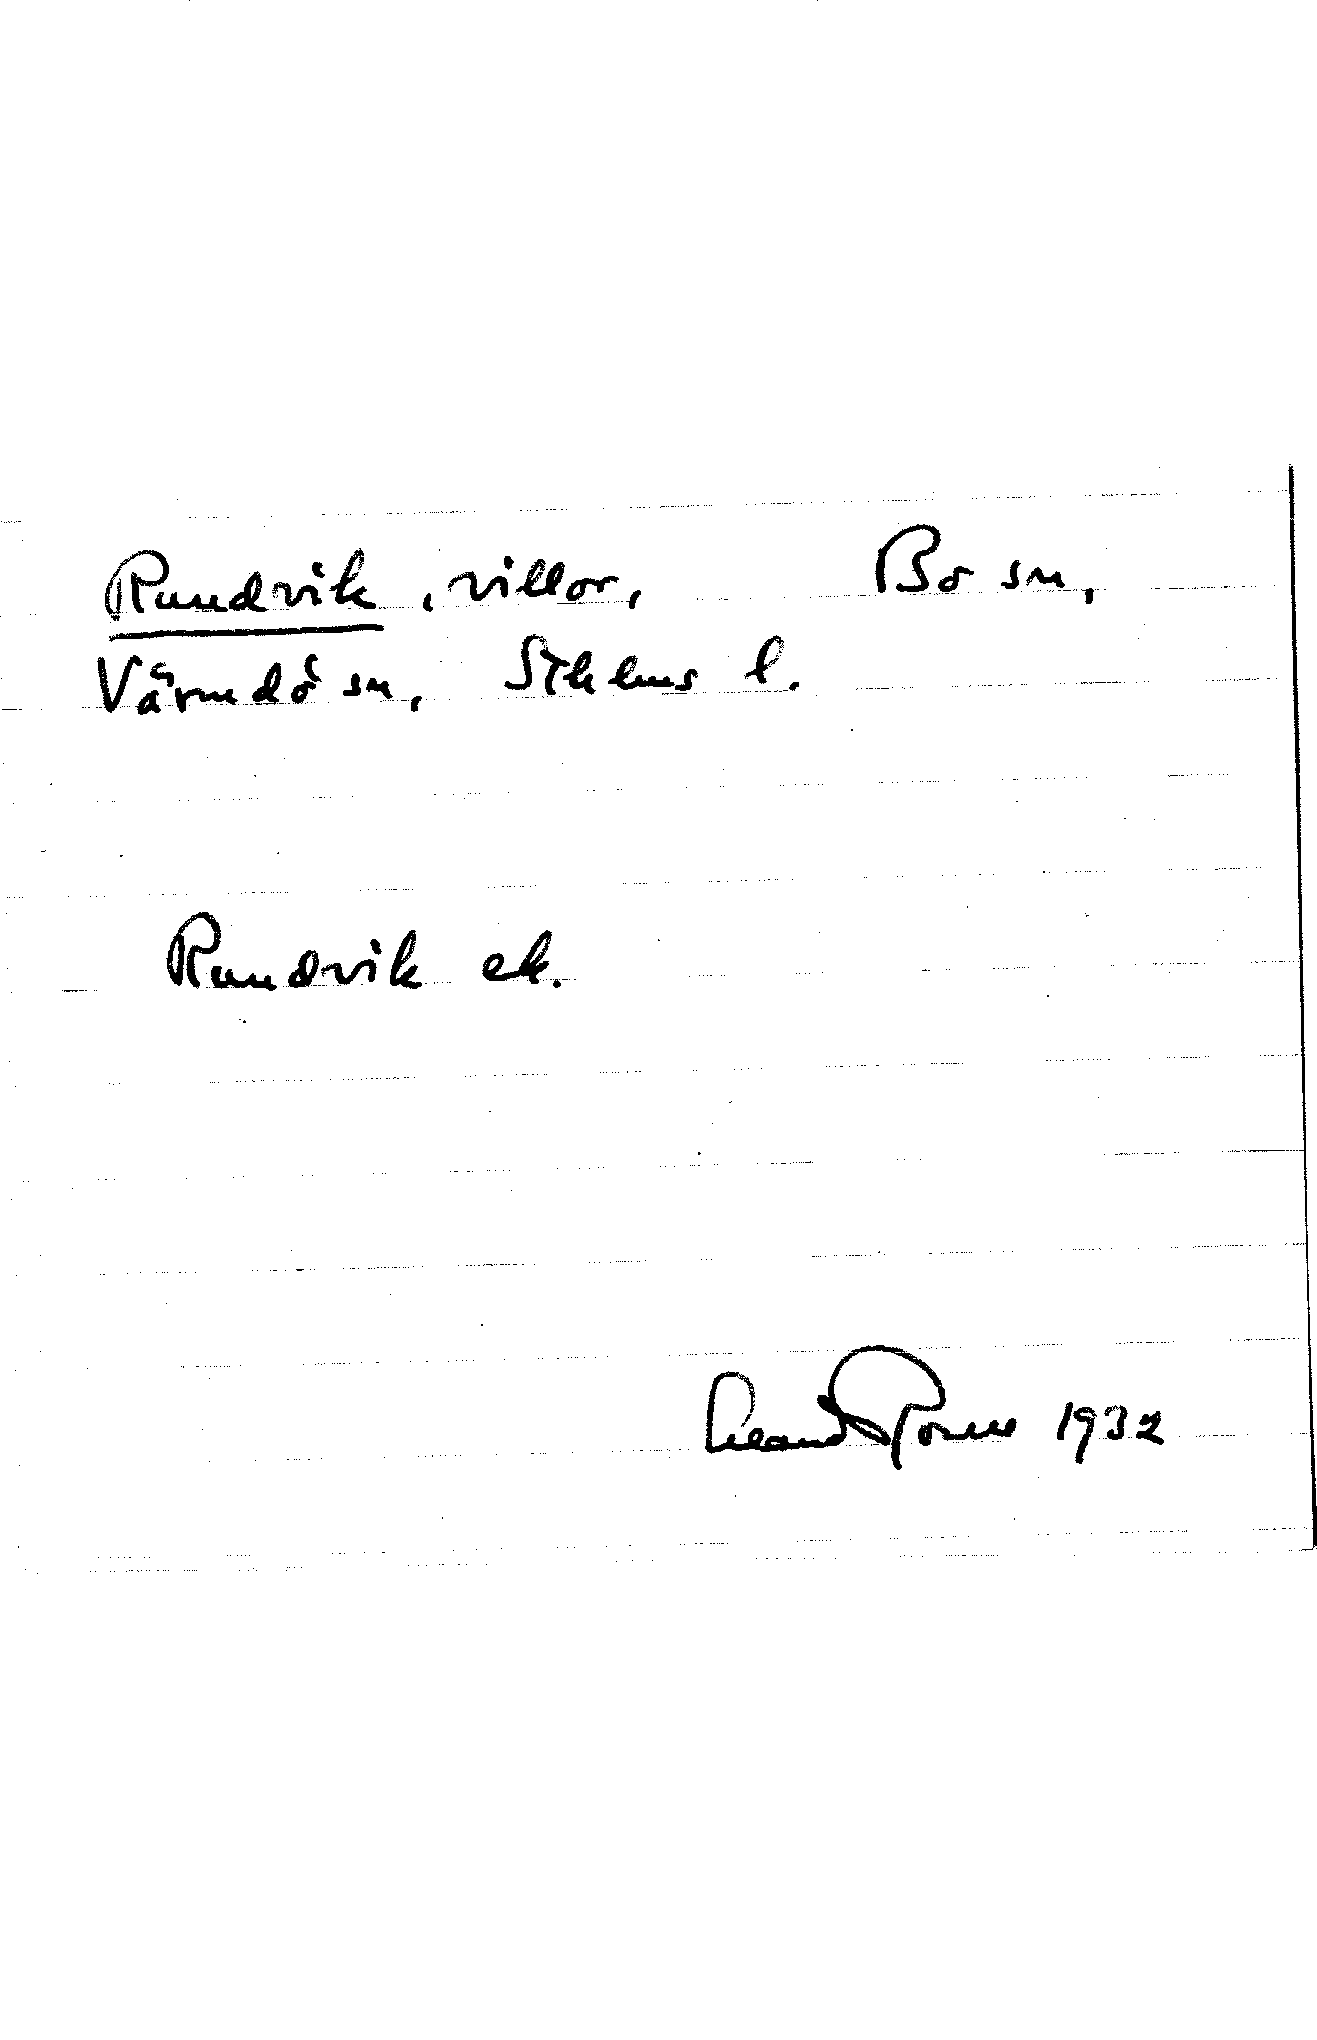 Rundvik, villor, Bo sn,
Värmdö sn, Sthlms l.
Rundvik ek.
1932